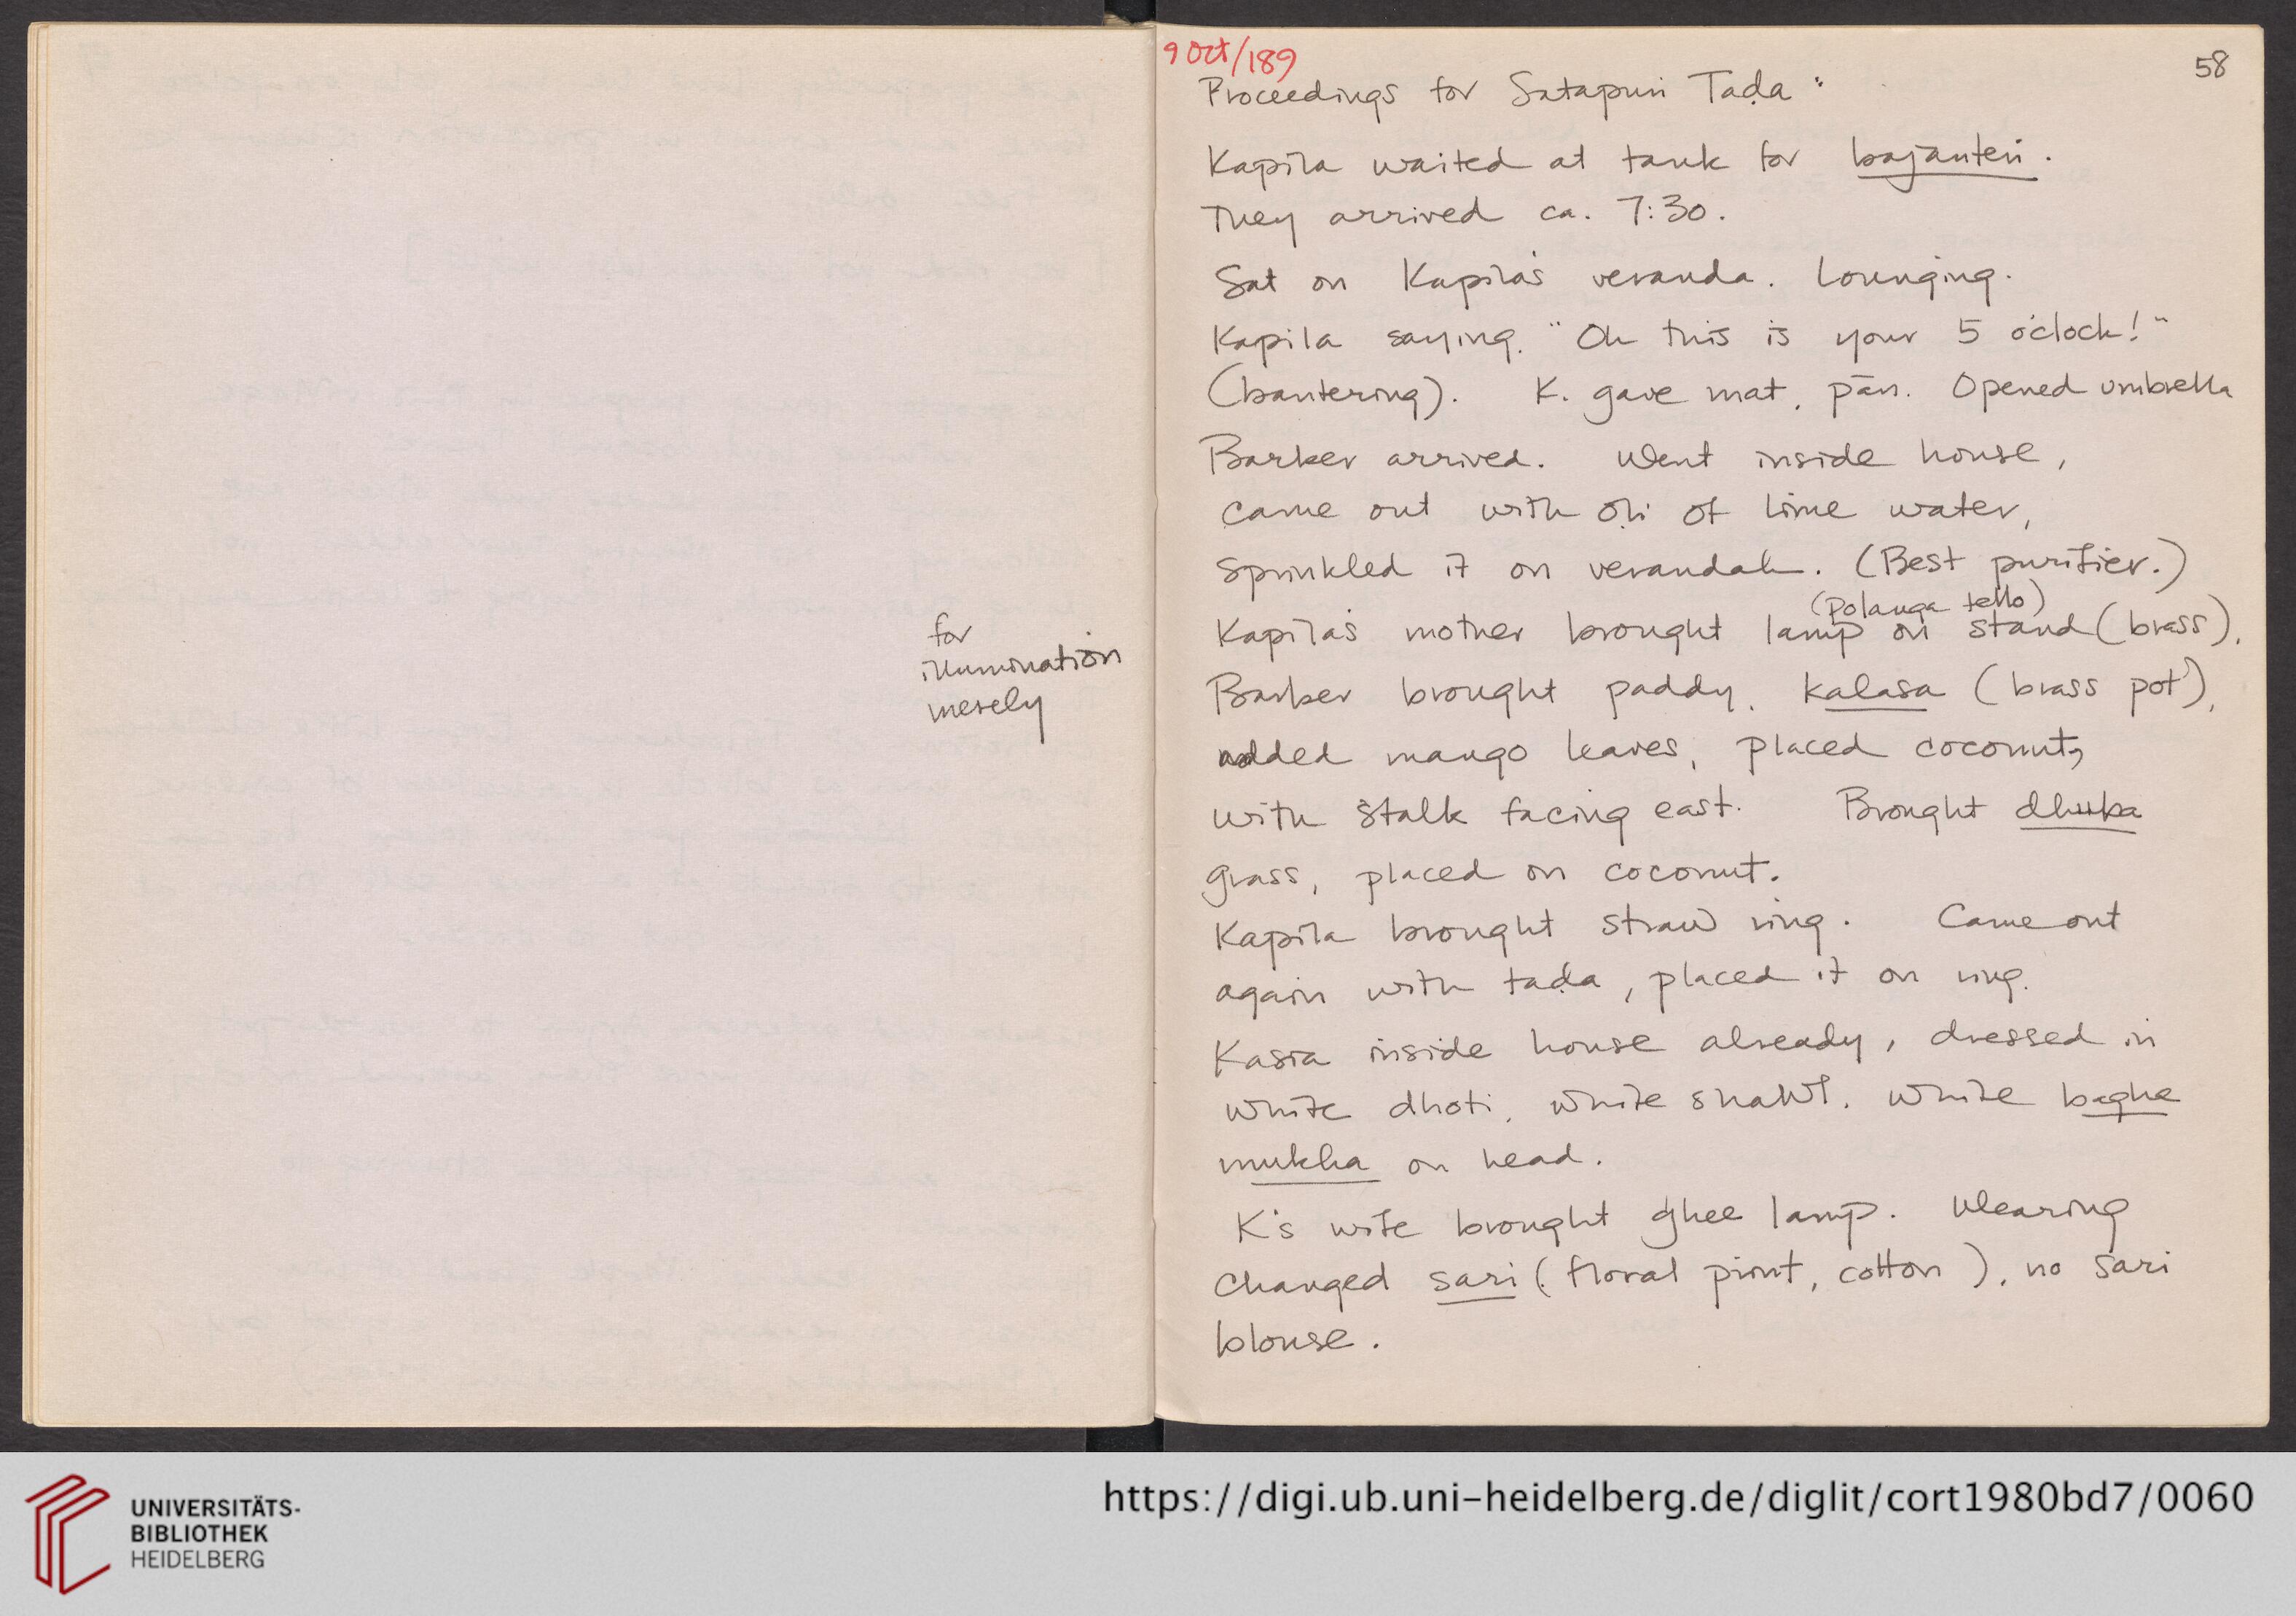 for
illumination
merely
9 Oct/189
58
Proceedings for Satapuri Taḍa:
Kapila waited at tank for bajanteri.
They arrived ca. 7:30.
Sat on Kapila's veranda. Lounging.
Kapila saying, "Oh this is your 5 o'clock!"
(bantering). K. gave mat, pān. Opened umbrella
Barber arrived. Went inside house,
came out with oḷi of lime water,
sprinkled it on verandah. (Best purifier.)
(Polanga tello)
Kapila's mother brought lamp on stand (brass).
Barber brought paddy, kalasa (brass pot),
added mango leaves, placed coconut,
with stalk facing east. Brought
grass, placed on coconut.
Kapila brought straw ring. Came out
again with taḍa, placed it on ring.
Kasia inside house already, dressed in
white dhoti, white shawl, white baghe
mukha on head.
K's wife brought ghee lamp. Wearing
changed sari (floral print, cotton), no sari
blouse.
UNIVERSITÄTS-
BIBLIOTHEK
HEIDELBERG
https://digi.ub.uni-heidelberg.de/diglit/cort1980bd7/0060